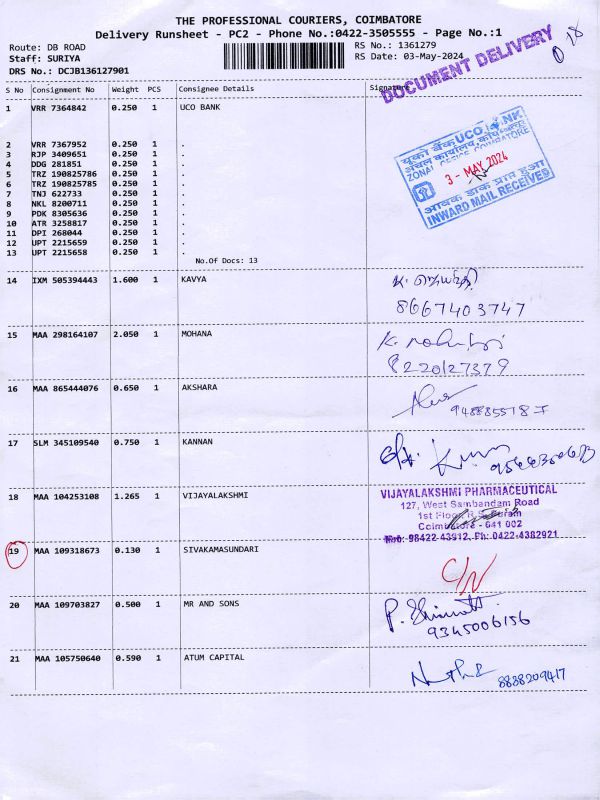 THE PROFESSIONAL COURIERS, COIMBATORE
Delivery Runsheet - PC2 - Phone No.:0422-3505555 - Page No.:1
Route: DB ROAD
Staff: SURIYA
DRS No.: DCJB136127901
RS No.: 1361279
RS Date: 03-May-2024
DOCUMENT DELIVERY
S No Consignment No Weight PCS Consignee Details Signature
1 VRR 7364842 0.250 1 UCO BANK
2 VRR 7367952 0.250 1 .
3 RJP 3409651 0.250 1 .
4 DDG 281851 0.250 1 .
5 TRZ 190825786 0.250 1 .
6 TRZ 190825785 0.250 1 .
7 TNJ 622733 0.250 1 .
8 NKL 8200711 0.250 1 .
9 PDK 8305636 0.250 1 .
10 ATR 3258817 0.250 1 .
11 DPI 268044 0.250 1 .
12 UPT 2215659 0.250 1 .
13 UPT 2215658 0.250 1 .
No.Of Docs: 13
यूको बैंक UCO BANK
अंचल कार्यालय
ZONAL OFFICE COIMBATORE
3 - MAY 2024
आवक डाक प्राप्त हुआ
INWARD MAIL RECEIVED
14 IXM 505394443 1.600 1 KAVYA
8667403747
15 MAA 298164107 2.050 1 MOHANA
8220127379
16 MAA 865444076 0.650 1 AKSHARA
17 SLM 345109540 0.750 1 KANNAN
18 MAA 104253108 1.265 1 VIJAYALAKSHMI
VIJAYALAKSHMI PHARMACEUTICAL
127, West Sambandam Road
1st Floor, R.S. Puram
Coimbatore - 641 002
Mob: 98422 43912, Ph: 0422-4382921
19 MAA 109318673 0.130 1 SIVAKAMASUNDARI
C/N
20 MAA 109703827 0.500 1 MR AND SONS
9345006156
21 MAA 105750640 0.590 1 ATUM CAPITAL
8838209417